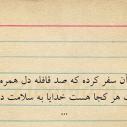 آن سفر کرده که صد قافله دل همره
هر کجا هست خدایا به سلامت د
...